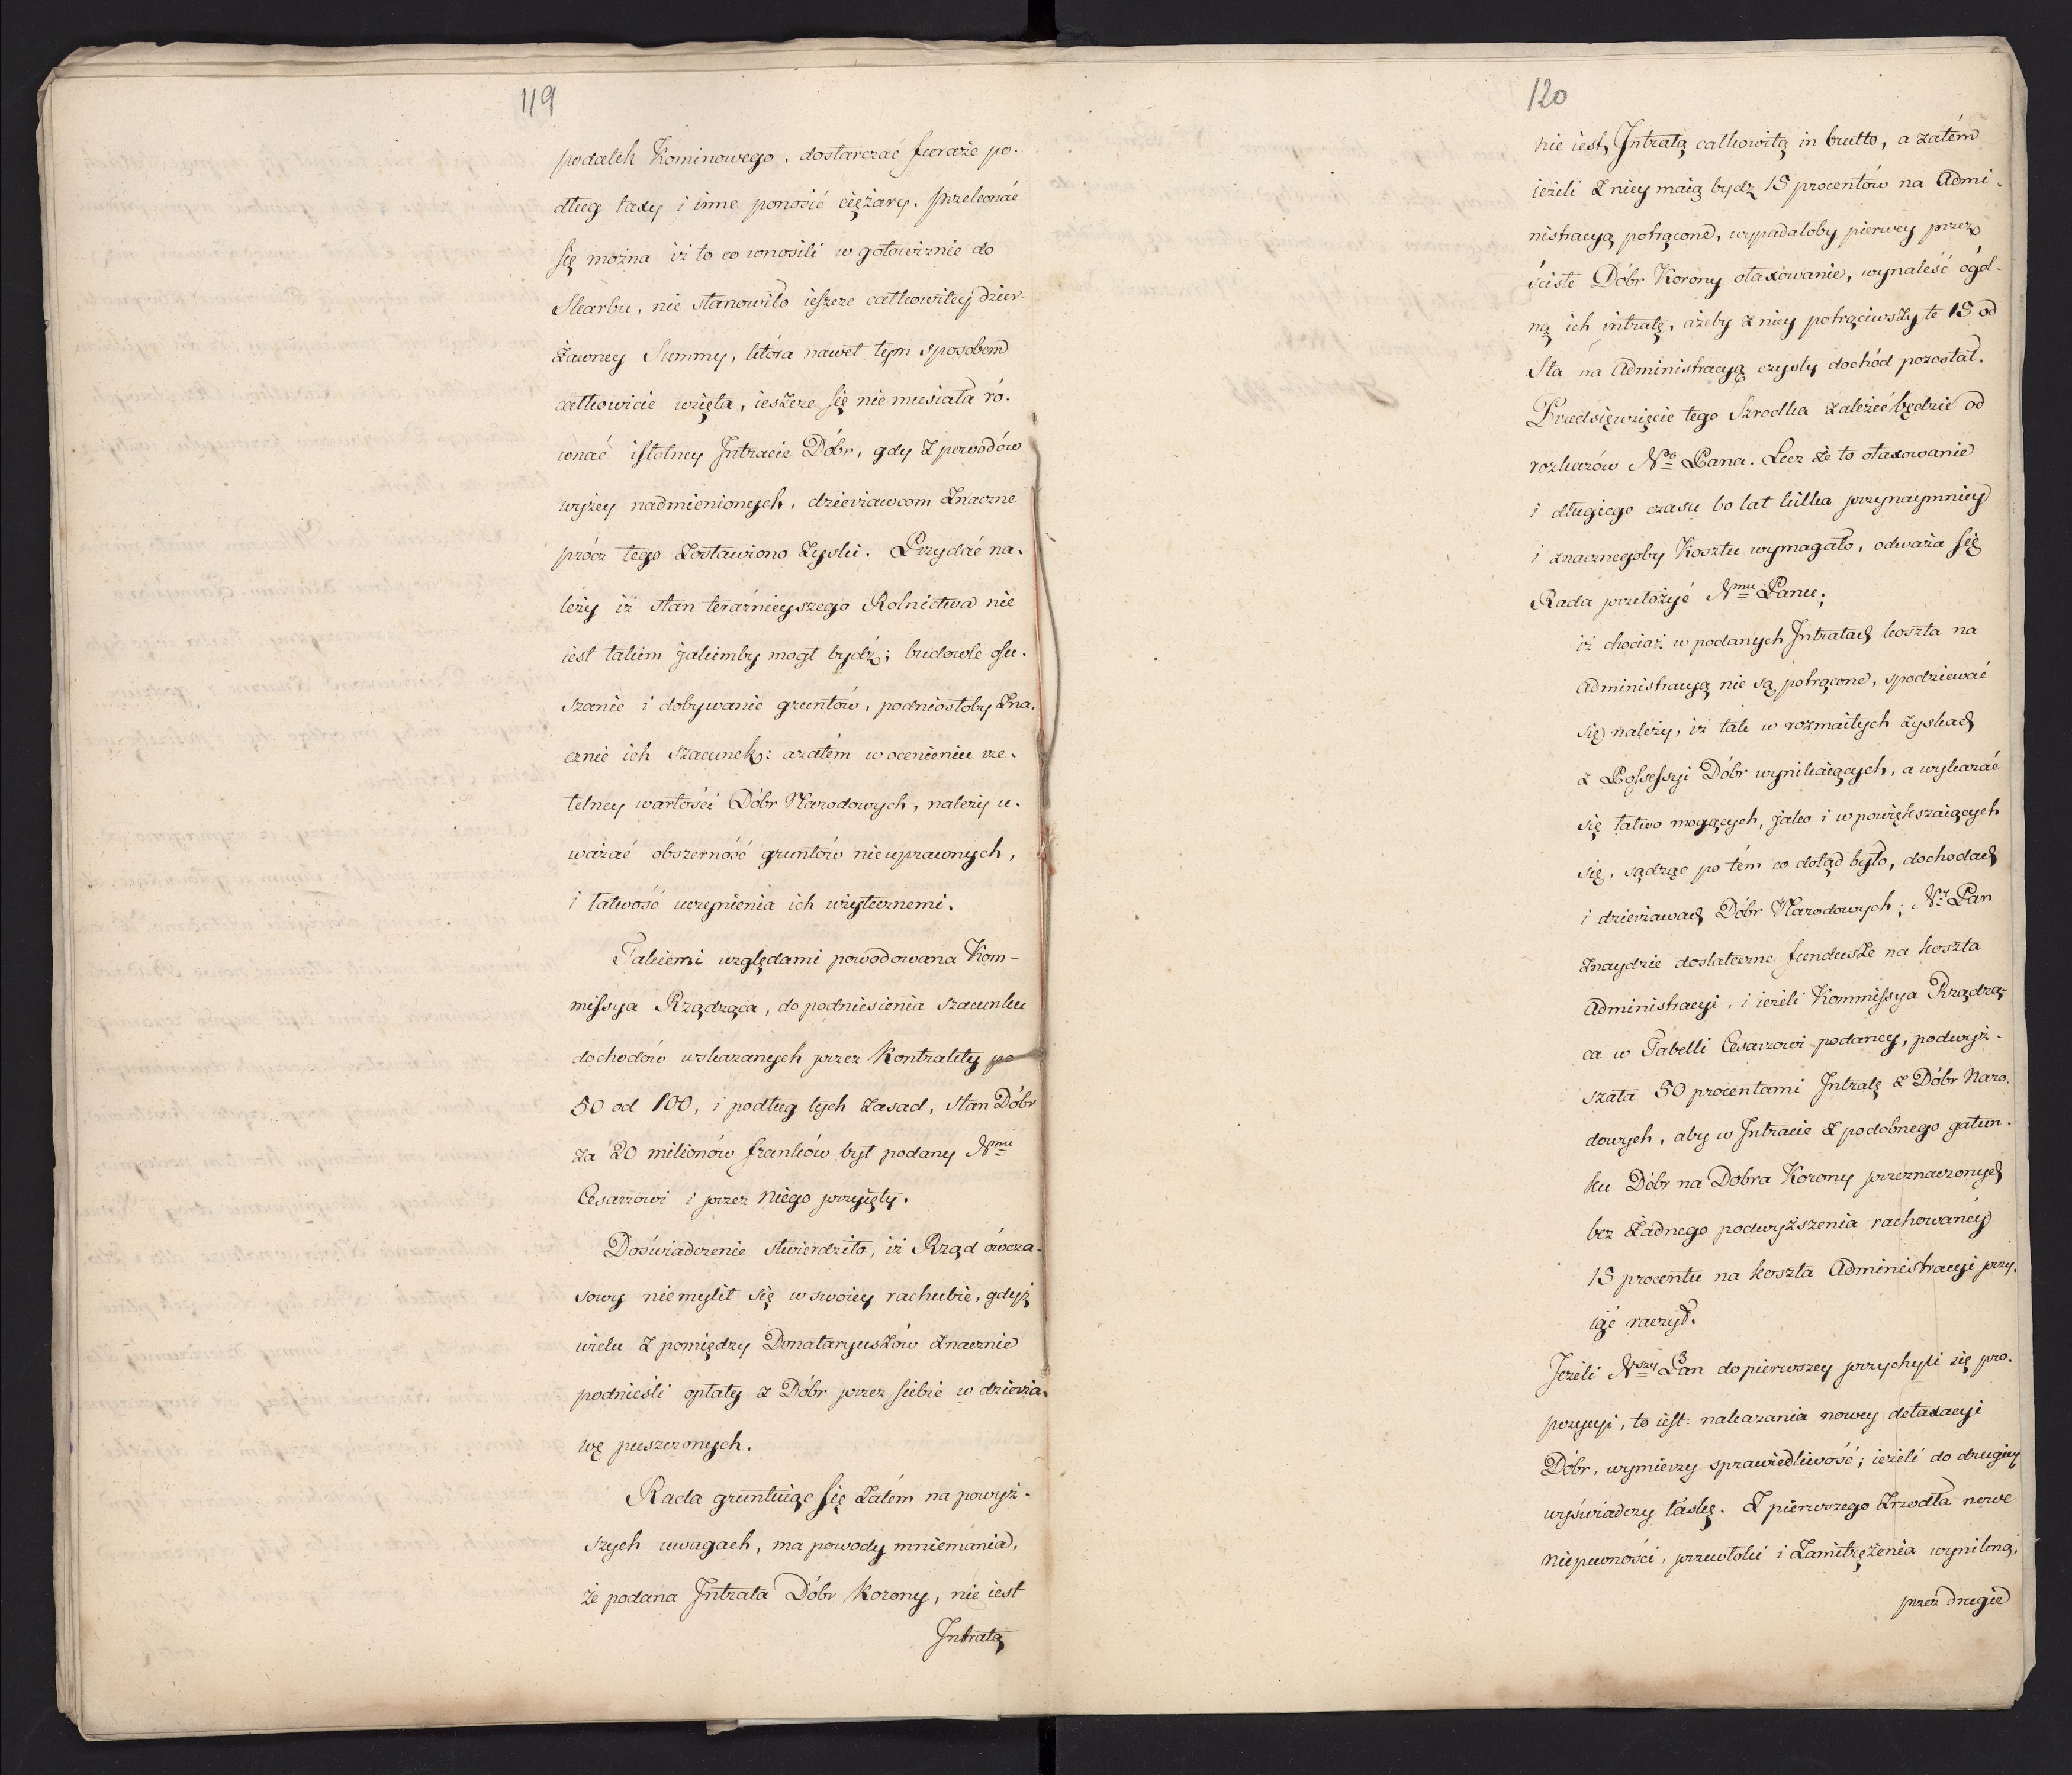 119
podatek Kominowego, dostarczać furaże po-
dług taxy i inne ponosić ciężary. Przekonać
się można iż to co wnosili w gotowiznie do
Skarbu, nie stanowiło ieszcze całkowitey dzier-
żawney Summy, która nawet tym sposobem
całkowicie wzięta, ieszcze się nie musiała ró-
wnać istotney Intracie Dóbr, gdy z powodów
wyżey nadmienionych, dzierżawcom znaczne
prócz tego zostawiono zyski. Przydać na-
leży iż stan teraźnieyszego Rolnictwa nie
iest takim jakimby mogł bydź; budowle osu-
szanie i dobywanie gruntów, podniosłoby zna-
cznie ich szacunek: azatém w ocenieniu rze-
telney wartości Dóbr Narodowych, należy u-
ważać obszerność gruntów nieuprawnych,
i łatwość uczynienia ich użytecznemi.
Takiemi względami powodowana Kom-
missya Rządząca, do podniesienia szacunku
dochodów wskazanych przez Kontrakty po
50 od 100, i podług tych zasad, stan Dóbr
za 20 milionów franków był podany Nmu
Cesarzowi i przez Niego przyięty.
Doświadczenie stwierdziło, iż Rząd ówcza-
sowy nie mylił się w swoiey rachubie, gdyż
wielu z pomiędzy Donataryuszów znacznie
podnieśli opłaty z Dóbr przez siebie w dzierża-
wę puszczonych.
Rada gruntuiąc się zatém na powyż-
szych uwagach, ma powody mniemania,
że podana Intrata Dóbr Korony, nie iest
Intratą
120
nie iest, Intratą całkowitą in brutto, a zatém
ieżeli z niey maią bydź 15 procentów na Admi-
nistracyą potrącone, wypadałoby pierwey przez
ściste Dóbr Korony otaxowanie, wynaleść ogól-
ną ich intratę, ażeby z niey potrąciwszy te 15 od
Sta na Administracyą czysty dochód pozostał.
Przedsięwzięcie tego Szrodka zależeć będzie od
rozkazów Ngo Pana. Lecz że to otaxowanie
i długiego czasu bo lat kilka przynaymniey
i znacznegoby Kosztu wymagało, odważa się
Rada przełożyć Nmu Panu;
iż chociaż w podanych Intratach koszta na
Administracyą nie są potrącone, spodziewać
się należy, iż tak w rozmaitych zyskach
z Possessyi Dóbr wynikaiących, a wykazać
się łatwo mogących, jako i w powiększaiących
się, sądząc po tém co dotąd było, dochodach
i dzierżawach Dóbr Narodowych; Ny Pan
znaydzie dostateczne fundusze na koszta
Administracyi, i ieżeli Kommissya Rządzą-
ca w Tabelli Cesarzowi podaney, podwyż-
szała 50 procentami Intratę z Dóbr Naro-
dowych, aby w Intracie z podobnego gatun-
ku Dóbr na Dobra Korony przeznaczonych
bez żadnego podwyższenia rachowaney
15 procentu na koszta Administracyi przy-
iąć raczył.
Jeżeli Nszy Pan do pierwszey przychyli się pro-
pozycyi, to iest: nakazania nowey detaxacyi
Dóbr, wymierzy sprawiedliwość; ieżeli do drugiey
wyświadczy łaskę. Z pierwszego zrzodła nowe
niepewności, przewłoki i zamitrężenia wynikną,
przez drugie